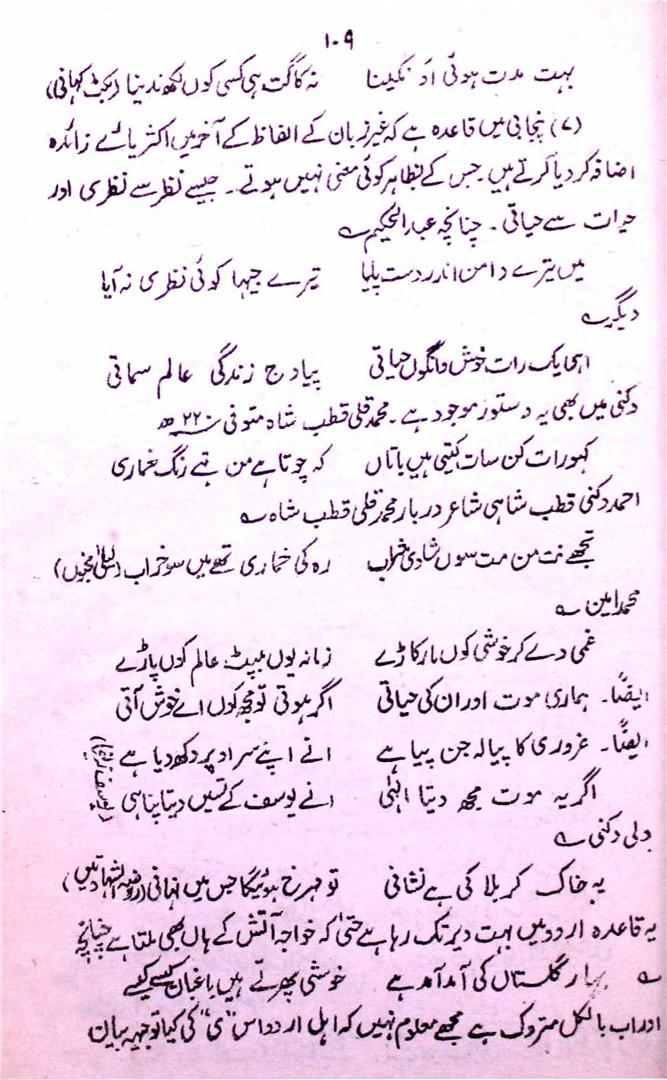 ۱۰۹
بہت مدت ہوئی اَو نگینا نہ کاگت ہی کسی کوں لکھ ندینا (بکٹ کہانی)
(۷) پنجابی میں قاعدہ ہے کہ غیر زبان کے الفاظ کے آخر میں اکثر یائے زائدہ
اضافہ کر دیا کرتے ہیں۔ جس کے بظاہر کوئی معنی نہیں ہوتے۔ جیسے نظر سے نظری اور
حیات سے حیاتی۔ چنانچہ عبدالحکیم ؎
میں تیرے دامن اندر دست پایا تیرے جیہا کوئی نظری نہ آیا
دیگر ؎
اہی یک رات خوش وانگوں حیاتی پیا وچ زندگی عالم سماتی
دکنی میں بھی یہ دستور موجود ہے۔ محمد قلی قطب شاہ متوفی ۲۲۰ھ
کہو رات کن سات کیتی ہیں باتاں کہ چوتا ہے من تھے رنگ خماری
احمد دکنی قطب شاہی شاعر دربار محمد قلی قطب شاہ ؎
تجھے نت من مت سوں شادی خراب رہ کی خماری تھے میں سو خراب (لیلیٰ مجنوں)
محمد امین ؎
غمی دے کر خوشی کوں مار کاڑے زمانہ یوں بپٹ عالم کوں پاڑے
ایضًا۔ ہماری موت اور ان کی حیاتی اگر ہوتی تو مجھ کوں اے خوش آتی
ایضًا۔ غروری کا پیالہ جن پیا ہے انے اپنے سر اوپر دکھ دیا ہے
اگر یہ موت مجھ دیتا الٰہی انے یوسف کے تئیں دیتا پناہی (یوسف زلیخا)
ولی دکنی ؎
یہ خاک کربلا کی ہے نشانی تو سرخ ہوئیگا جس میں نہانی (روضۃ الشہدا میں)
یہ قاعدہ اردو میں بہت دیر تک رہا ہے حتیٰ کہ خواجہ آتش کے ہاں بھی ملتا ہے چنانچہ
؎ بہار گلستاں کی آمد آمد ہے خوشی پھرتے ہیں باغباں کیسے کیسے
اور اب بالکل متروک ہے مجھے معلوم نہیں کہ اہل اردو اس "ی" کی کیا توجیہہ بیان